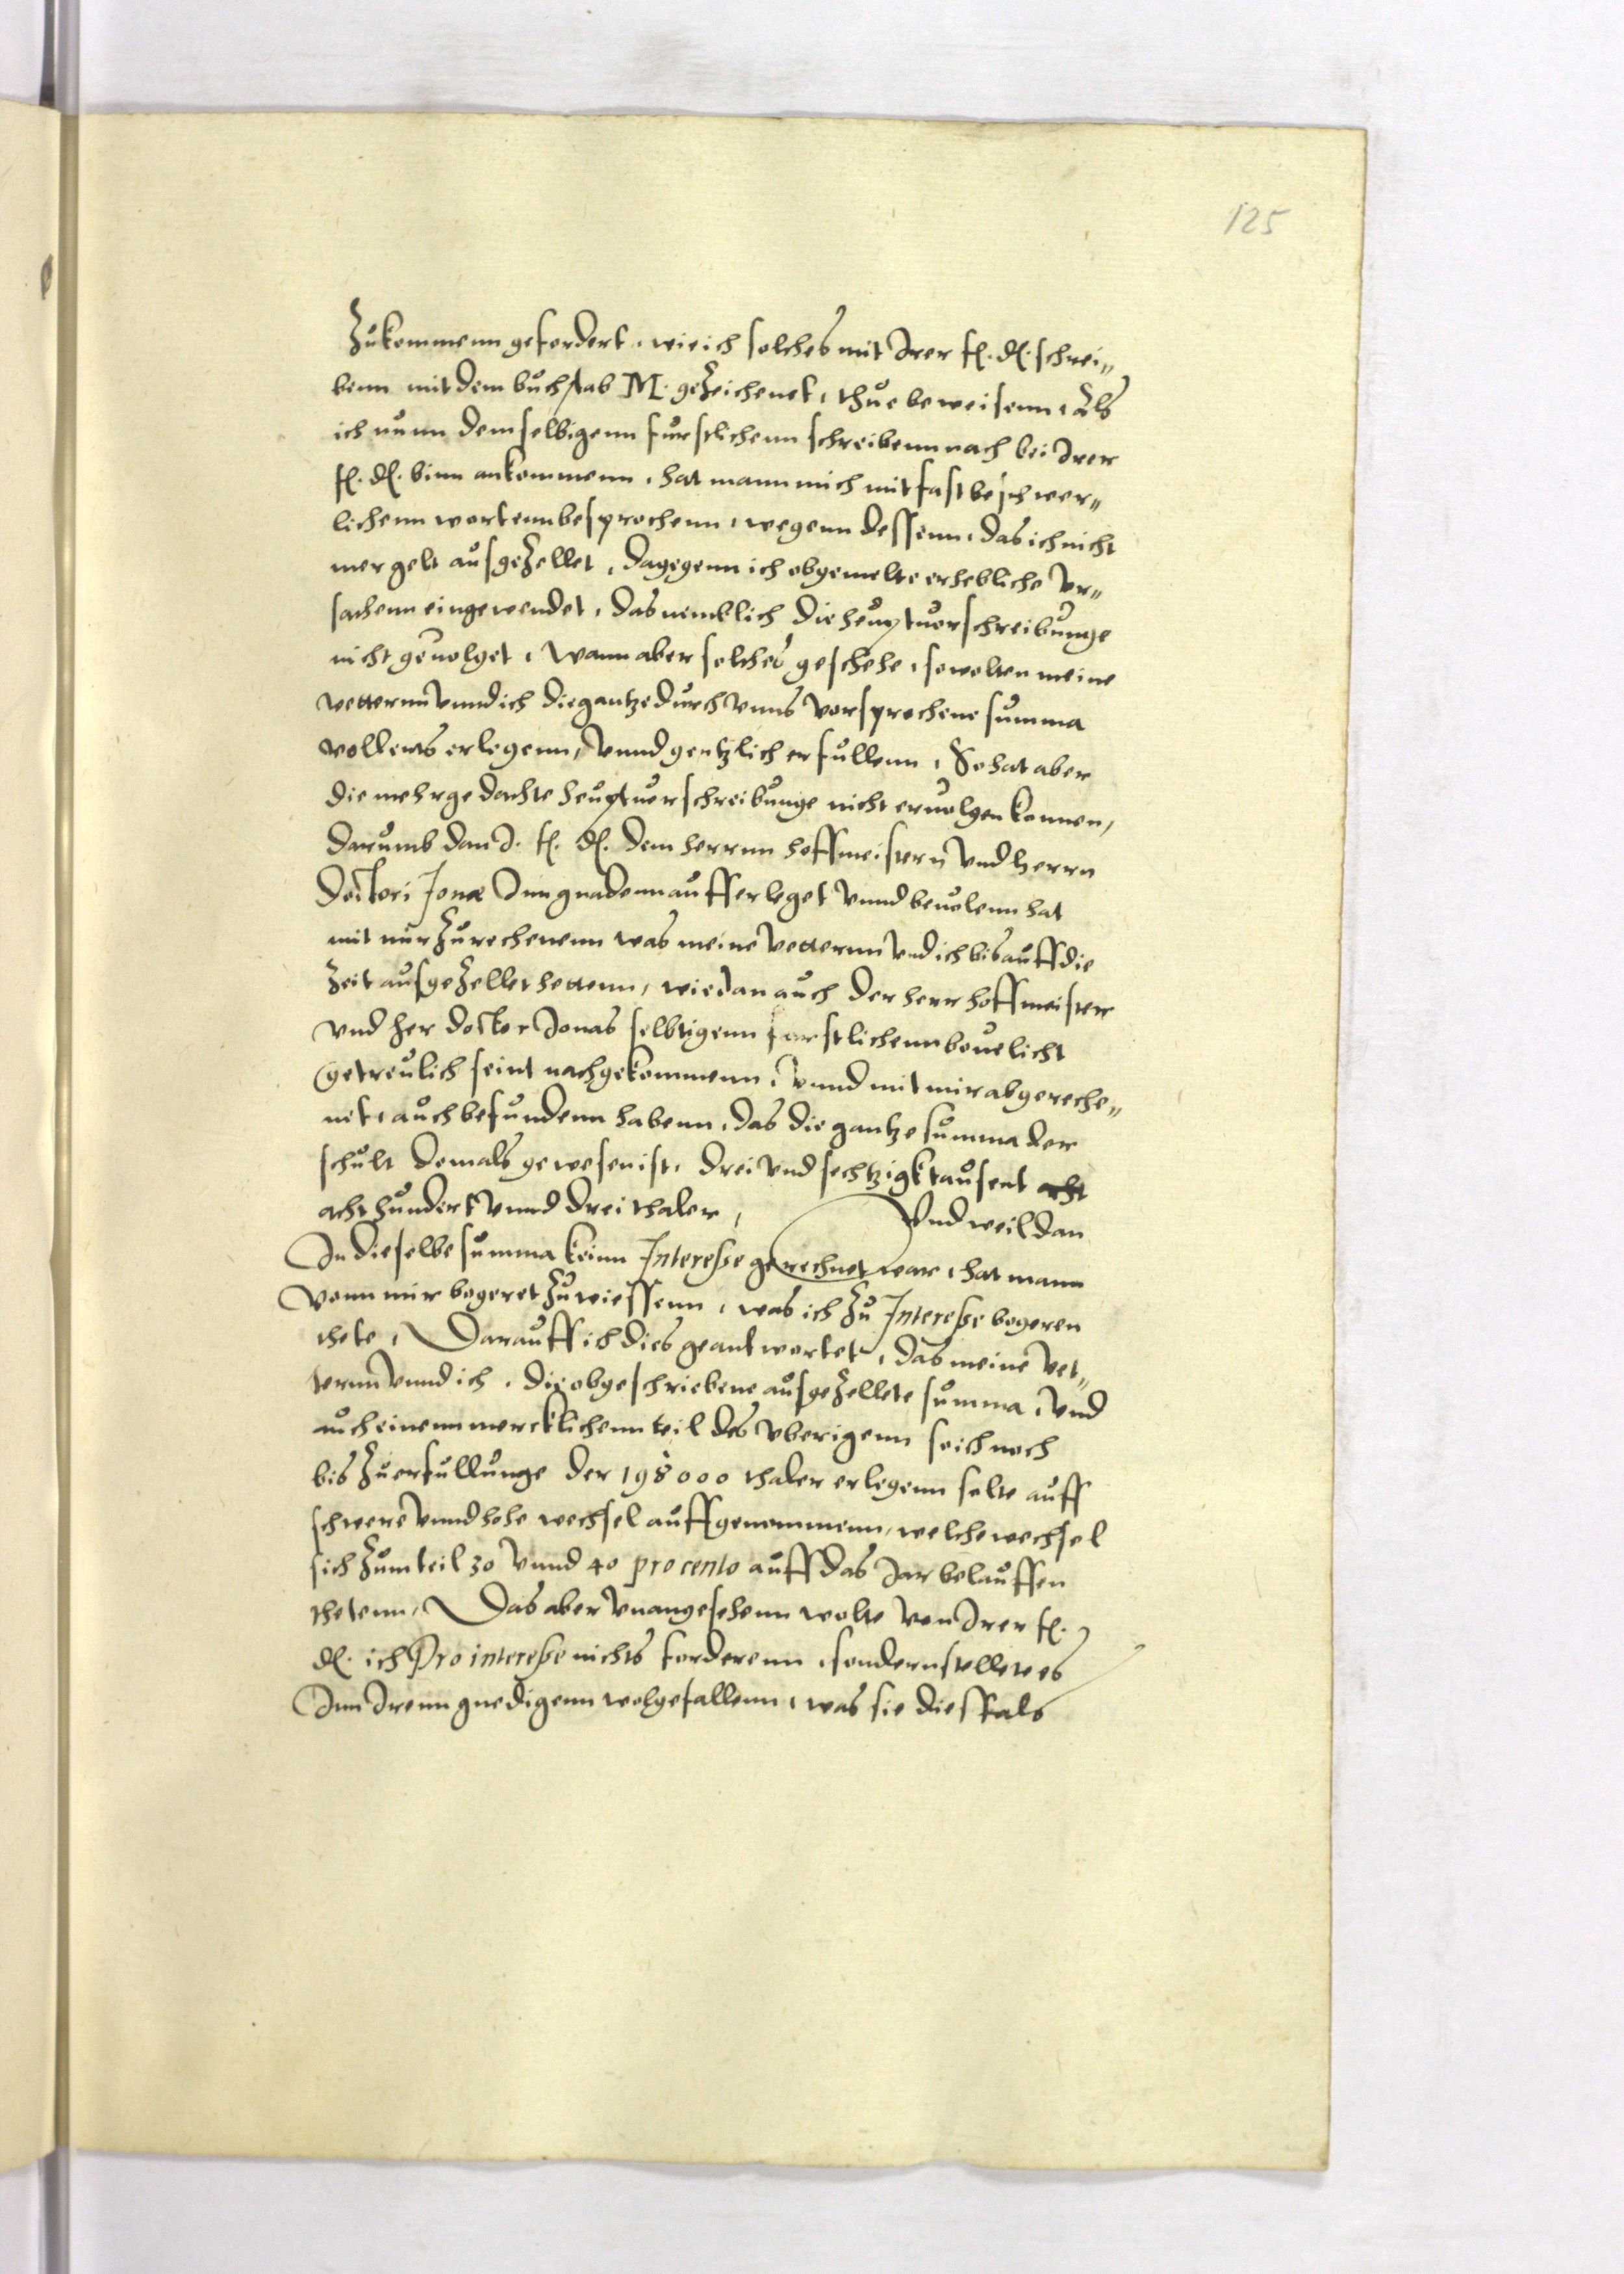 125
Zukommenn gefordert, wie ich solches mit Irer f. d. schrei„
benn mit dem buchstab M. gezeichenet, thue beweisenn, Als
ich nunn demselbigenn furstlichenn schreibenn nach bei Irer
f. d. binn ankommenn, hat mann mich mit fast beschwer„
lichenn wortenn besprochenn, wegenn dessenn, das ich nicht
mer gelt ausgezellet, dagegenn ich obgemelte erhebliche Vr„
sachenn eingewendet, das nemblich die heuptuorschreibunge
nicht geuolget, Wann aber solches geschehe, so wolten meine
vetternn vnnd ich die gantze durch vnns vorsprochene summa
vollents erlegenn, vnnd gentzlich erfullenn, So hat aber
die mehrgedachte heuptuerschreibunge nicht eruolgen konnen,
darumb dan I. f. d. dem herrnn hoffmeistern vnd herrn
Doctori Jonæ Inn gnadenn aufferleget vnnd beuolenn hat
mit mir zurechenenn was meine vetternn vnd ich bis auff die
Zeit ausgezellet hettenn, wie dan auch der herr hoffmeister
vnd her doctor Jonas selbtigenn furstlichenn beuelicht
getreulich seint nachgekommenn, vnnd mit mir abgereche„
net, auch befundenn habenn, das die gantze summa der
schult domals gewesen ist, drei vnd sechtzigk tausent acht
acht hundert vnnd drei thaler, Vnd weil dan
In dieselbe summa keinn Interesse gerechnet war, hat mann
vonn mir begeret zu wiessenn, was ich zu Interesse begeren
thete, Darauff ich dies geantwortet, das meine vet„
ternn vnnd ich, die obgeschriebene ausgezellete summa, vnd
auch einenn mercklichenn teil des vberigenn so ich noch
bis zu erfullunge der 198000 thaler erlegenn solte auff
schwere vnnd hohe wechsel auffgenommenn, welche wechsel
sich zum teil 30 vnnd 40 pro cento auff das Jar belauffen
thetenn, Das aber vnangesehenn wolte von Irer f.
d. ich Pro interesse nichts forderenn, sondern stellete es
Inn Irenn gnedigenn wolgefallenn, was sie diesfals